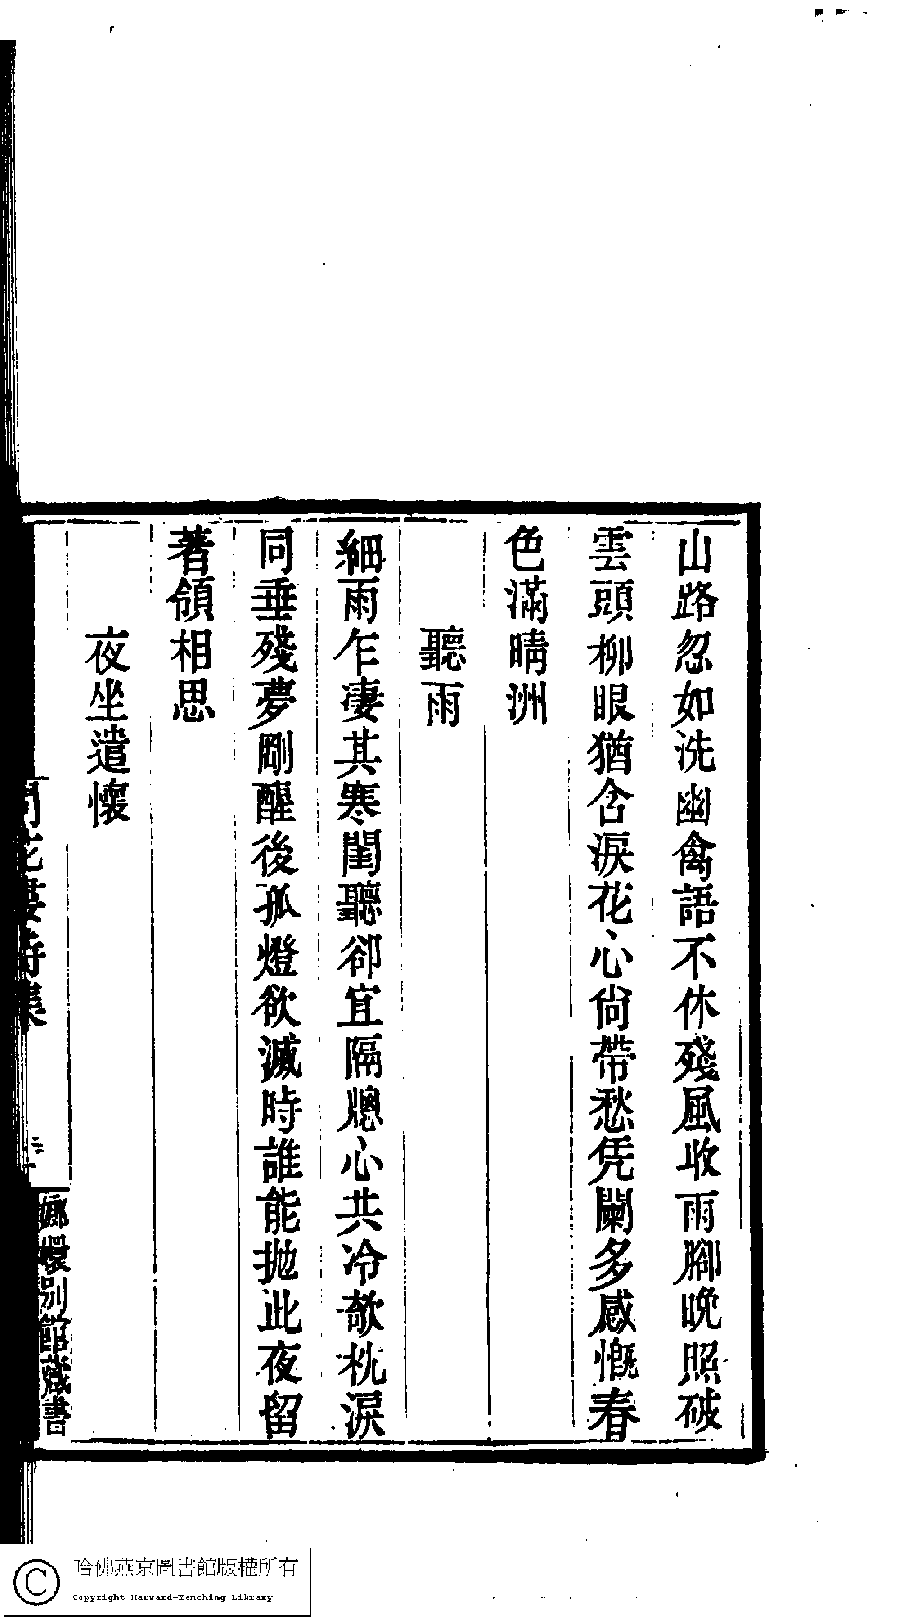 山路忽如洗幽禽語不休殘風收雨腳晚照破
雲頭柳眼猶含淚花心尙帶愁凭闌多感慨春
色滿晴洲
聽雨
細雨乍淒其寒閨聽卻宜隔牕心共冷欹枕淚
同垂殘夢剛醒後孤燈欲滅時誰能拋此夜留
著領相思
夜坐遣懷
花樓詩集
嫏嬛別館藏書
哈佛燕京圖書館版權所有
Copyright Harvard-Yenching Library